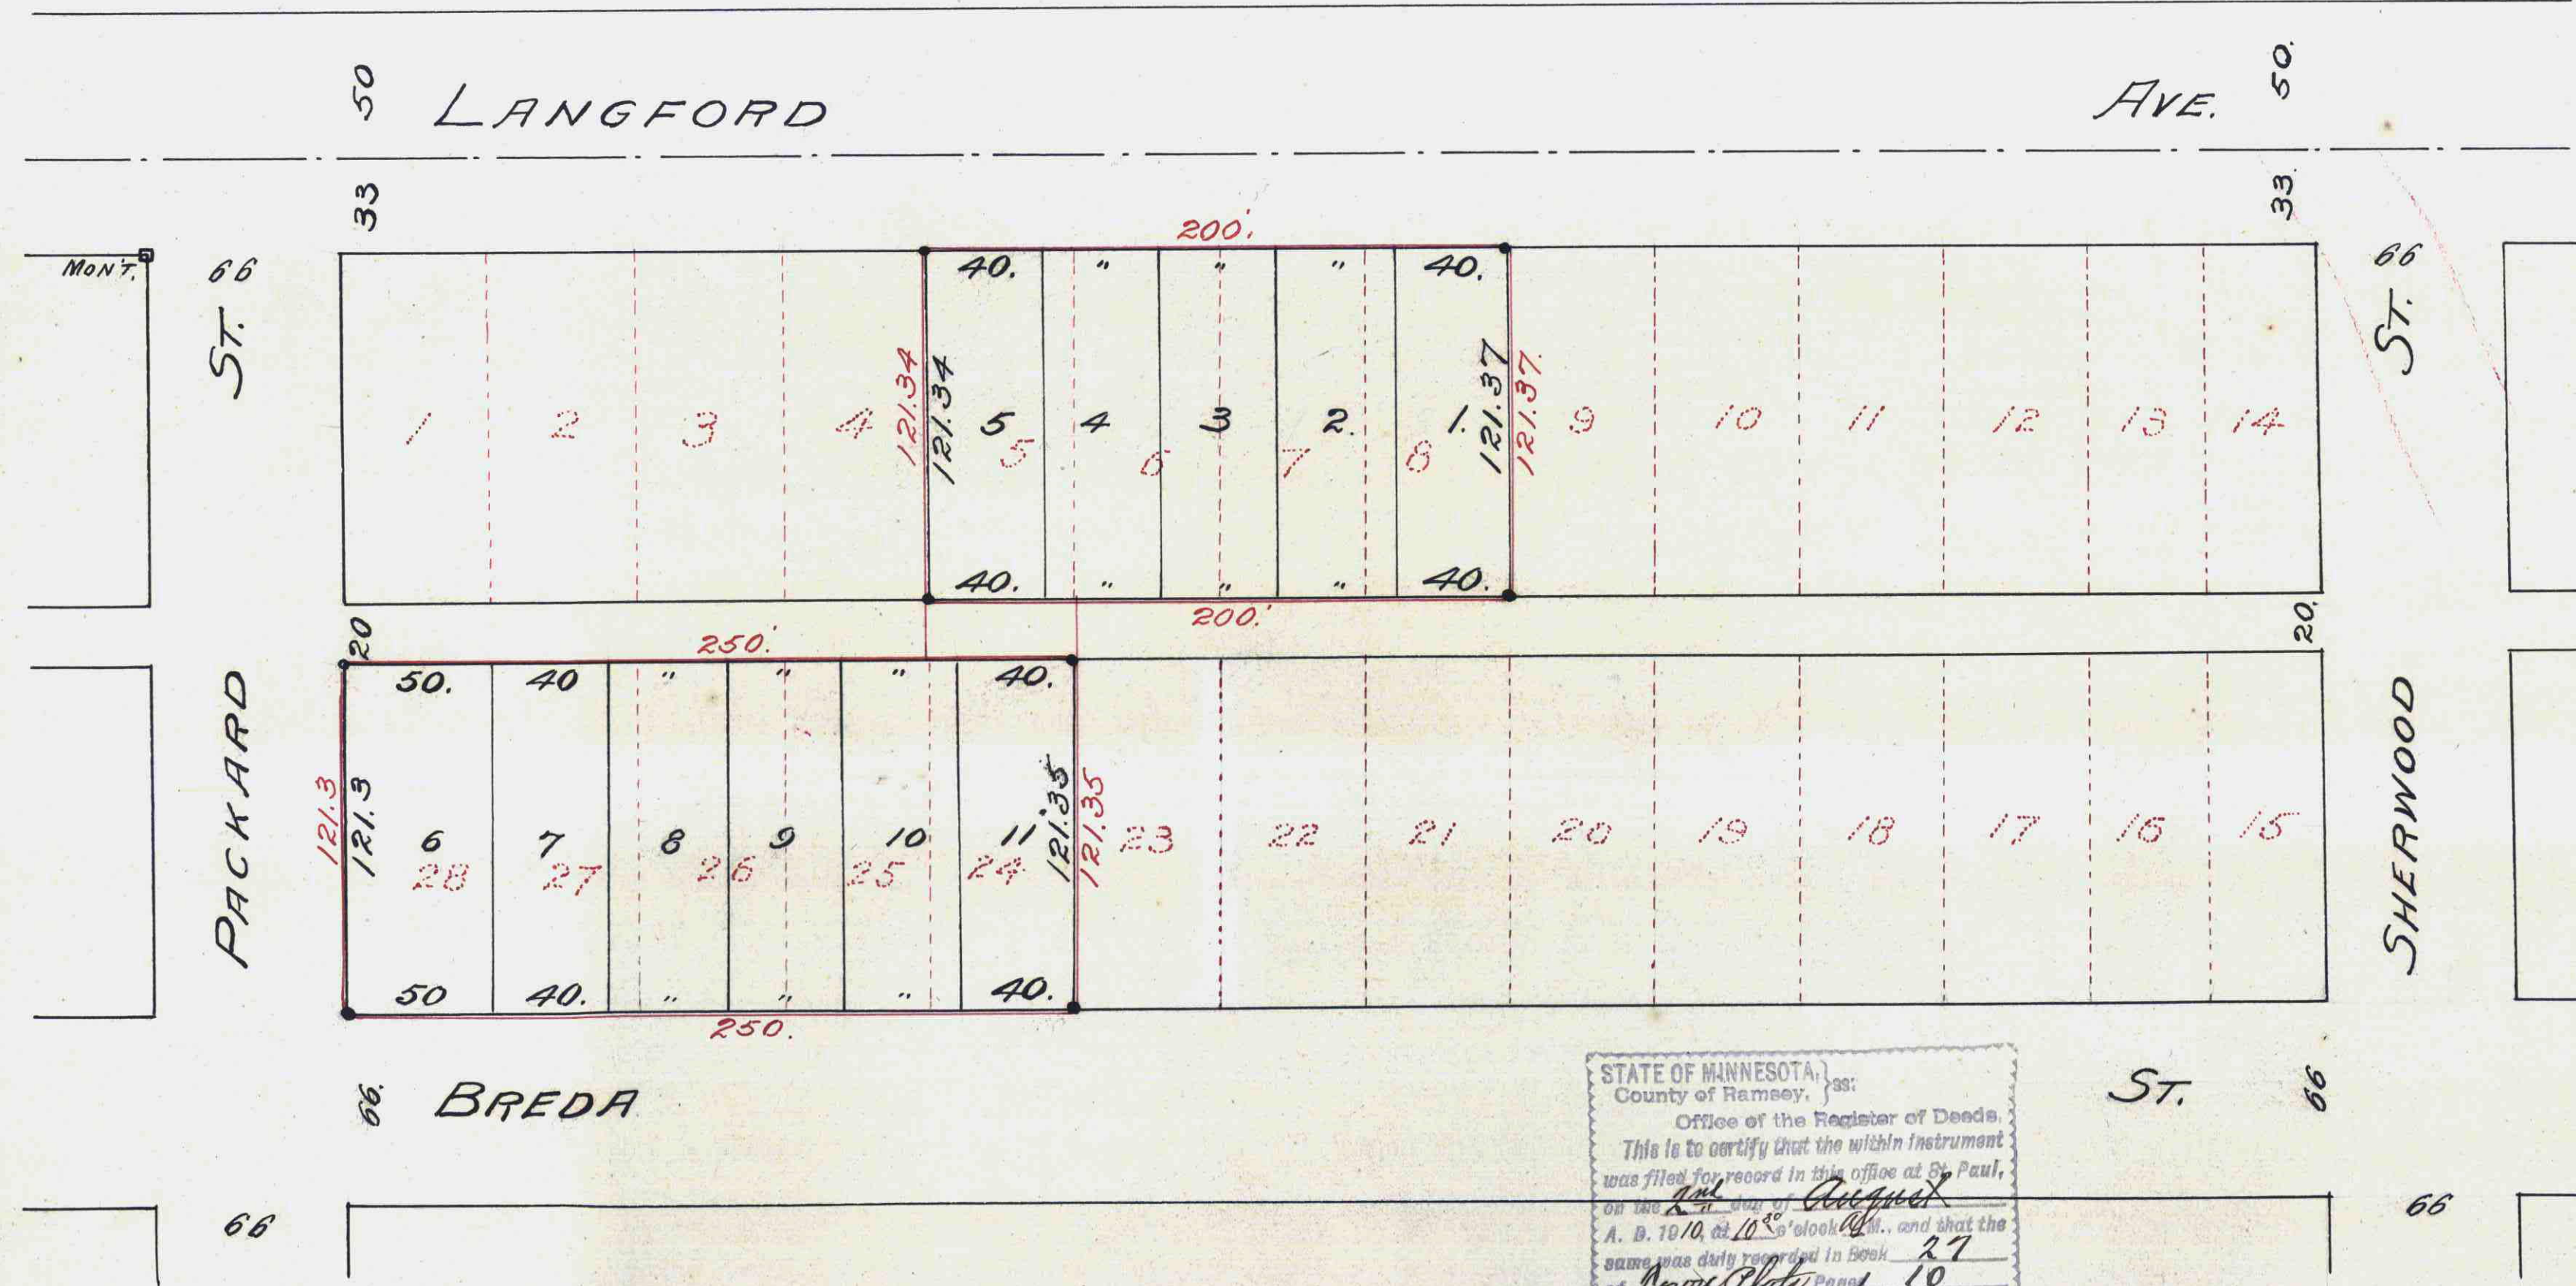 50 LANGFORD AVE. 50.
33 33.
200.'
MON'T. 66 66
40. " " " 40.
ST. ST.
121.34 121.34 121.37 121.37
1 2 3 4 5 4 3 2. 1. 9 10 11 12 13 14
5 6 7 8
40. " " " 40.
200.'
20 20.
250.'
50. 40 " " " 40.
PACKARD SHERWOOD
121.3 121.3 121.35 121.35
6 7 8 9 10 11 23 22 21 20 19 18 17 16 15
28 27 26 25 24
50 40. " " " 40.
250.
66. BREDA ST. 66
66 66
STATE OF MINNESOTA, } ss:
County of Ramsey,
Office of the Register of Deeds,
This is to certify that the within instrument
was filed for record in this office at St. Paul,
on the 2nd day of August
A. D. 1910, at 10 30 o'clock A M., and that the
same was duly recorded in Book 27
of Plats Page 10